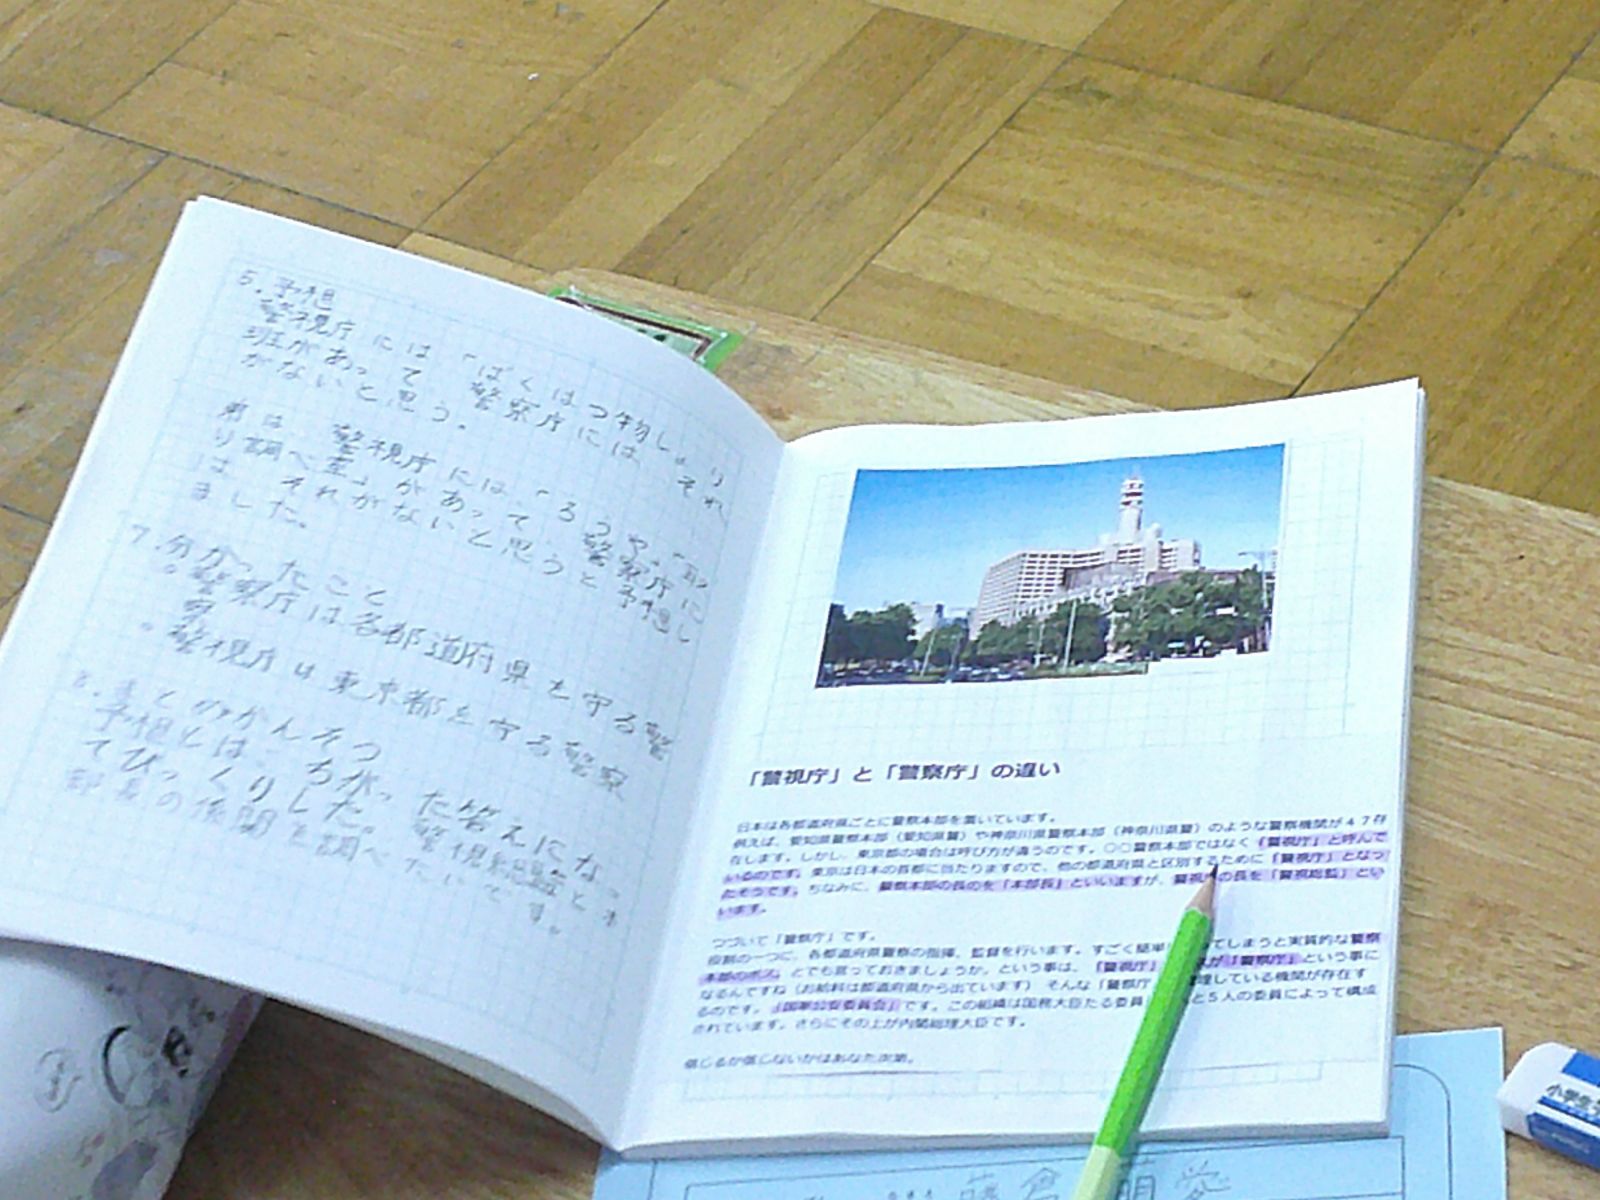 5.予想
警視庁には「ばくはつ物しょり
班があって 警察庁には それ
がないと思う。
弟は、警視庁には、「ろうや」「取
り調べ室」があって、警察庁に
は それがないと思うと予想し
ました。
7.分かったこと
。警察庁は各都道府県を守る警
察
。警視庁は東京都を守る警察
予想とは、ちがった答えになっ
てびっくりした。警視総監と本
部長の後関を調べたいです。
「警視庁」と「警察庁」の違い
日本は各都道府県ごとに警察本部を置いています。
例えば、愛知県警察本部（愛知県警）や神奈川県警察本部（神奈川県警）のような警察機関が47存
在します。しかし、東京都の場合は呼び方が違うのです。○○警察本部ではなく「警視庁」と呼んで
いるのです。東京は日本の首都に当たりますので、他の都道府県と区別するために「警視庁」となっ
たそうです。ちなみに、警察本部の長のを「本部長」といいますが、警視庁の長を「警視総監」とい
います。
つづいて「警察庁」です。
役割の一つに、各都道府県警察の指揮、監督を行います。すごく簡単に てしまうと実質的な警察
本部のボス。とでも言っておきましょうか。という事は、「警視庁」 が「警察庁」という事に
なるんですね（お給料は都道府県から出ています） そんな「警察庁 理している機関が存在す
るのです。「国家公安委員会」です。この組織は国務大臣たる委員 と5人の委員によって構成
されています。さらにその上が内閣総理大臣です。
信じるか信じないかはあなた次第。
小学生